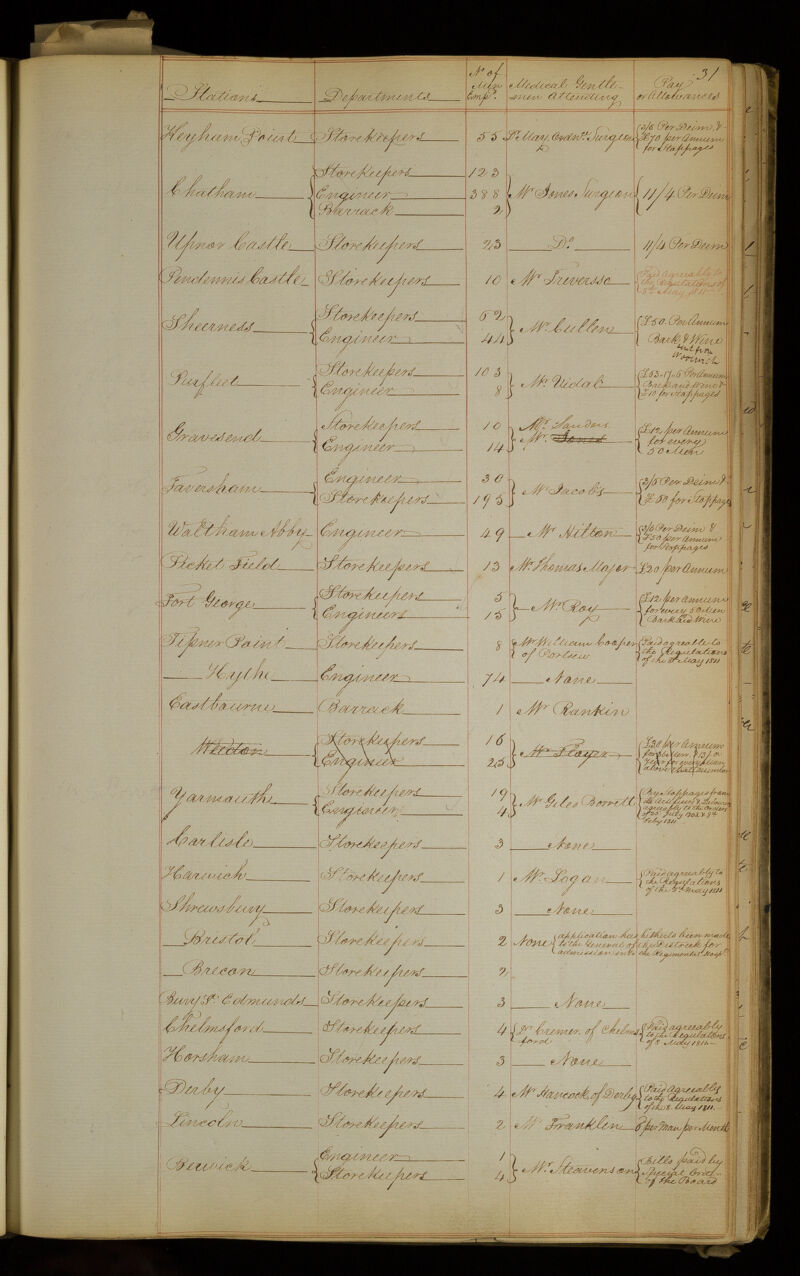 31
Stations Departments No of Men Emp.d Medical Gentlemen attending Pay or Allowances
Heyham Point Storekeepers 55 Dr May, Ordn.ce Surgeon 3/6 Per Deim, &
£70 per Annum
for Stoppages
Storekeepers 123
Chatham Engineer 388 Mr Jones Surgeon 11/4 Per Deim
Barrack 2
Upnor Castle Storekeepers 23 Do 11/4 Per Deim
Pendennis Castle Storekeepers 10 Mr Treversso Paid agreeably to
the regulations of
8th May 1811
Sheerness Storekeepers 62 Mr Cullen £50. Per Annum
Engineer 44 Bark & Wine
sent from
Woolwich
Purfleet Storekeepers 103 Mr Vidal £53.17.6 Per Annum
Engineer 8 Bark and Wine &
£10 for Stoppages
Gravesend Storekeepers 10 Mr Sanders £12 per Annum
Engineer 14 Mr Jones for every
50 Men
Faversham Engineer 30 Mr Jacobs 3/6 Per Deim &
Storekeepers 195 £50 for Stoppages
Waltham Abby Engineer 49 Mr Hilton 3/6 Per Deim &
£50 per Annum
for Stoppages
Picket Field Storekeepers 13 Mr Thomas Major £20 per Annum
Fort George Storekeepers 5 Mr Roy £12 per Annum
Engineers 15 for every 50 Men
Bark and Wine
Tipner Point Storekeepers 8 Mr William Cooper Paid agreable to
of Portsea the Regulations
of the 8 May 1811
Hythe Engineer 74 None
Eastbourne Barrack 1 Mr Rankin
Weedon Storekeepers 16 Mr Floyer £30 per Annum
Engineer 25
Yarmouth Storekeepers 19 Mr Giles Borrett By Stoppages from
Engineer 4 the Artificers & Labourers
agreeably to the Orders
of 20 July 1803 & 8th
Feby 1811
Carlisle Storekeepers 3 None
Harwich Storekeepers 1 Mr Logan Paid agreeably to
the Regulations
of the 8th May 1811
Shrewsbury Storekeepers 3 None
Bristol Storekeepers 2 None application has hitherto been made
to the General of the District for
admission into the Regimental Hosp.l
Brecon Storekeepers 2
Bury St Edmunds Storekeepers 3 None
Chelmsford Storekeepers 4 Dr Cremer, of Chelmsford Paid agreeably
to the Regulations
of 8 May 1811
Horsham Storekeepers 3 None
Derby Storekeepers 4 Mr Hancock of Derby Paid Agreeably
to the Regulations
of the 8 May 1811
Lincoln Storekeepers 2 Mr Franklin per Man per Month
Berwick Engineer 1 Mr Steavenson Bills paid by
Storekeepers 4 Special Order
of the Board